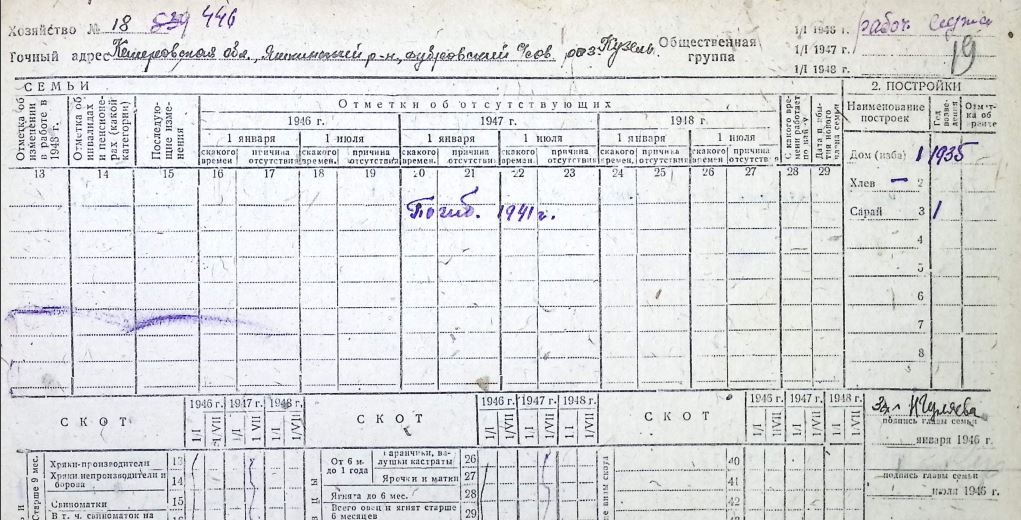 Хозяйство № 18 446
Точный адрес Кемеровская обл., Яшкинский р-н, Дубровский с/сов. поз. Кузель
Общественная группа
1/I 1946 г. рабоч.
1/I 1947 г.
1/I 1948 г.
19
СЕМЬИ
2. ПОСТРОЙКИ
Отметка об изменении в работе в 1948 г.
Отметка об инвалидах и пенсионерах (какой категории)
Последующие изменения
Отметки об отсутствующих
1946 г. 1947 г. 1948 г.
1 января 1 июля 1 января 1 июля 1 января 1 июля
с какого времен. причина отсутствия с какого времен. причина отсутствия с какого времен. причина отсутствия с какого времен. причина отсутствия с какого времен. причина отсутств. с какого времен. причина отсутств.
С какого времени работает
Наименование построек
Год возведения
13 14 15 16 17 18 19 20 21 22 23 24 25 26 27 28 29
Дом (изба) 1 1935
Хлев – 2
Погиб. 1941 г.
Сарай 3 1
4
5
6
7
8
СКОТ 1946 г. 1947 г. 1948 г. СКОТ 1946 г. 1947 г. 1948 г. СКОТ 1946 г. 1947 г. 1948 г.
1/I 1/VII 1/I 1/VII 1/I 1/VII 1/I 1/VII 1/I 1/VII 1/I 1/VII 1/I 1/VII 1/I 1/VII 1/I 1/VII
подпись главы семьи
января 1946 г.
подпись главы семьи
июля 1946 г.
Старше 9 мес.
Хряки-производители 13
Хряки непроизводители и борова 14
Свиноматки 15
В т. ч. свиноматок на 16
От 6 м. до 1 года
баранчики, валушки кастраты 26
Ярочки и матки 27
Ягнята до 6 мес. 28
Всего овец и ягнят старше 6 месяцев 29
40
41
42